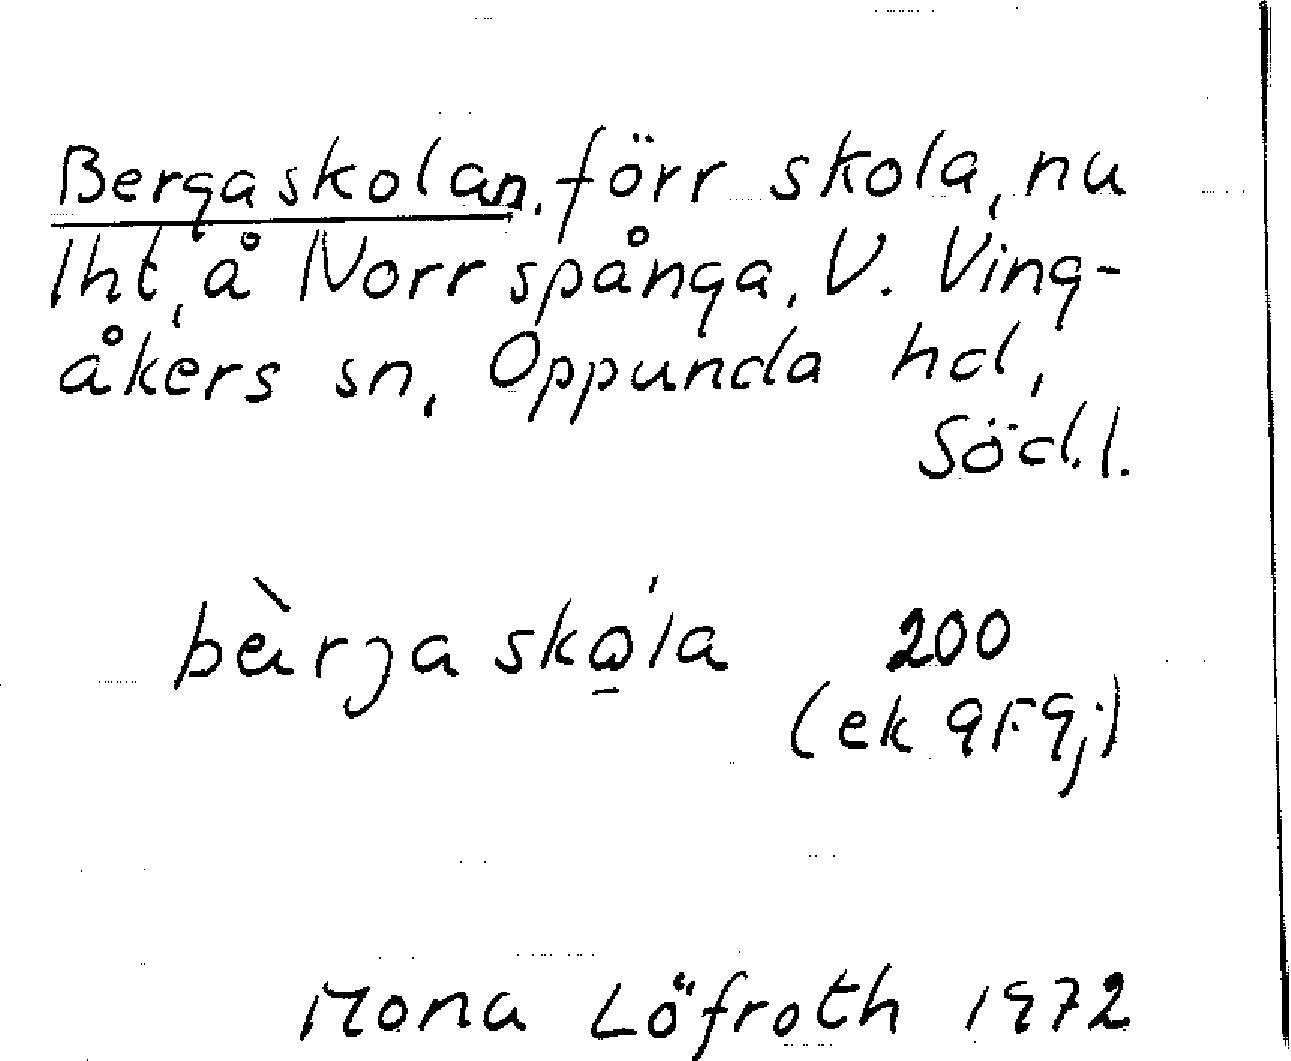 Bergaskolan, förr skola, nu
lht, å Norrspånga, V. Ving-
åkers sn, Oppunda hd,
Södl.
bèrjaskola 200
(ek 9F9j)
Mona Löfroth 1972